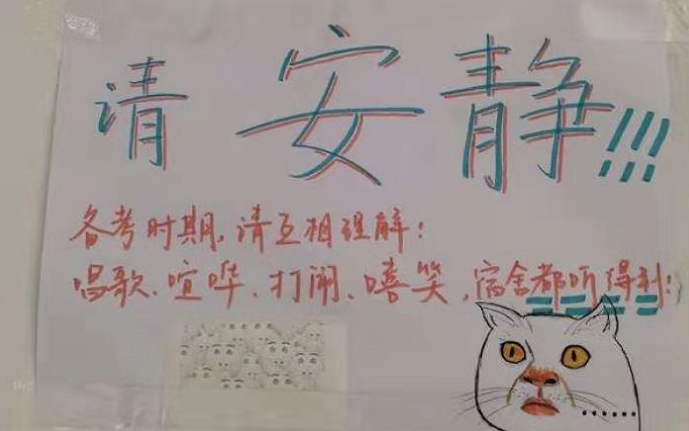 请安静!!!
备考时期,请互相理解:
唱歌、喧哗、打闹、嘻笑,宿舍都听得到:)
......